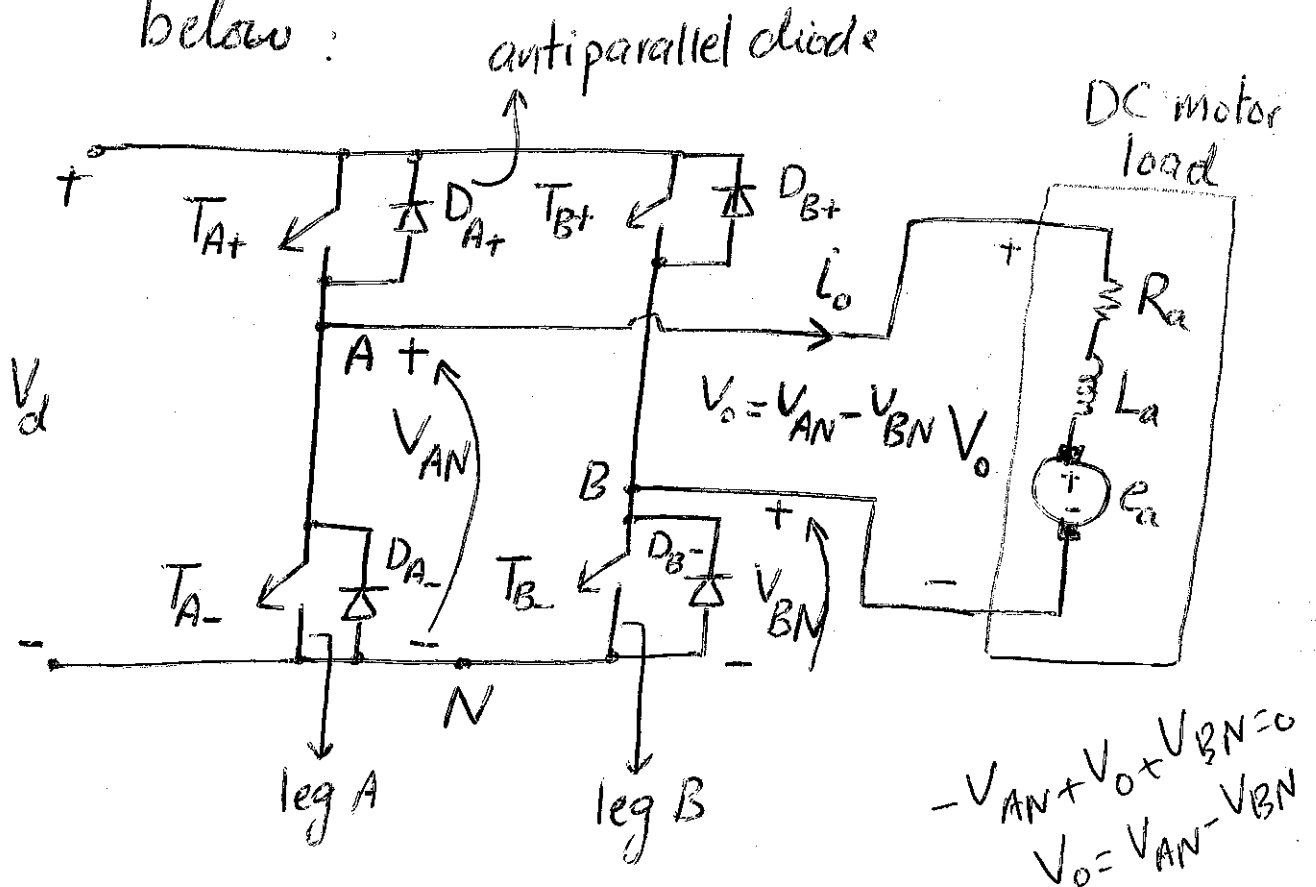 below :
antiparallel diode
DC motor
load
+
T_A+
D_A+
T_B+
D_B+
i_o
+
R_a
A +
V_d
V_AN
V_o = V_AN - V_BN
V_o
L_a
B
+
+
-
e_a
D_A-
D_B-
T_A-
T_B-
V_BN
-
-
-
-
N
leg A
leg B
-V_AN + V_o + V_BN = 0
V_o = V_AN - V_BN